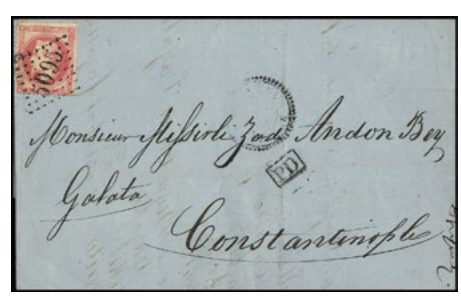 5095
Monsieur Missirli Zade Andon Bey
PD
Galata
Constantinople